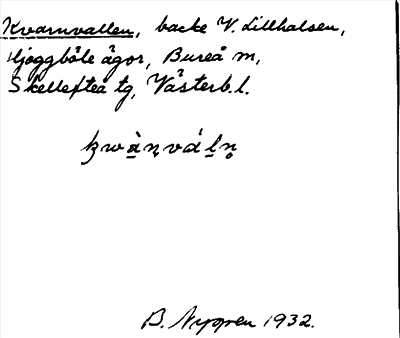 Kvarnvallen, backe V. Lillhalsen,
Hjoggböle ägor, Bureå m,
Skellefteå tg, Västerb. l.
B. Nygren 1932.